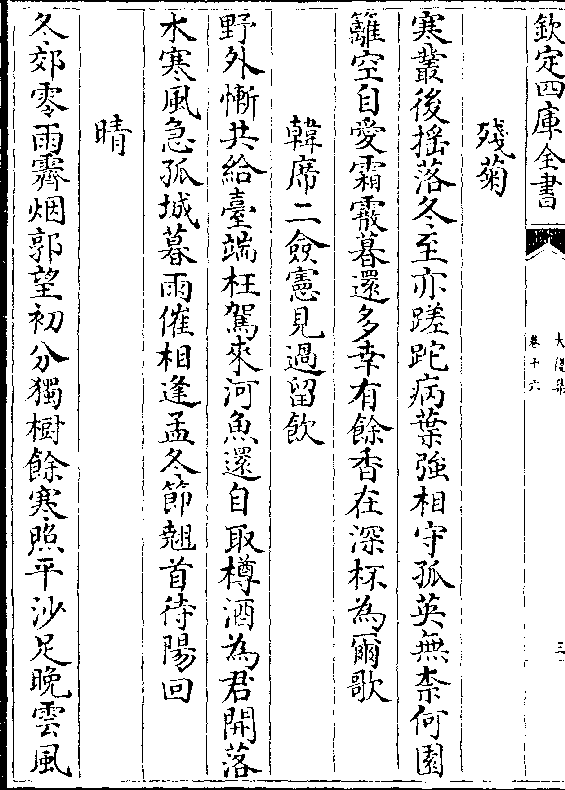 欽定四庫全書
卷十六
三
殘菊
寒叢後搖落冬至亦蹉跎病葉強相守孤英無柰何園
籬空自愛霜霰暮還多幸有餘香在深杯為爾歌
韓席二僉憲見過留飲
野外慚共給臺端枉駕來河魚還自取樽酒為君開落
木寒風急孤城暮雨催相逢孟冬節翹首待陽回
晴
冬郊零雨霽烟郭望初分獨樹餘寒照平沙足晚雲風